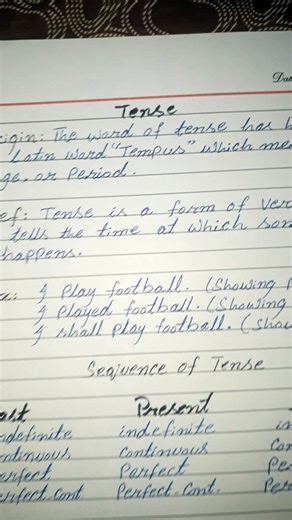 Da
Tense
igin: The word of tense has b
Latin word "Tempus" which me
ge, or Period.
ef: Tense is a form of ver
tells the time at which som
happens.
x: I Play football. (Showing P
I Played football. (Showing
I shall play football. (Show
Sequence of Tense
ast Present
ndefinite indefinite in
ntinuous continuous Con
erfect Parfect Pe
erfect.Cont Perfect.Cont. Per